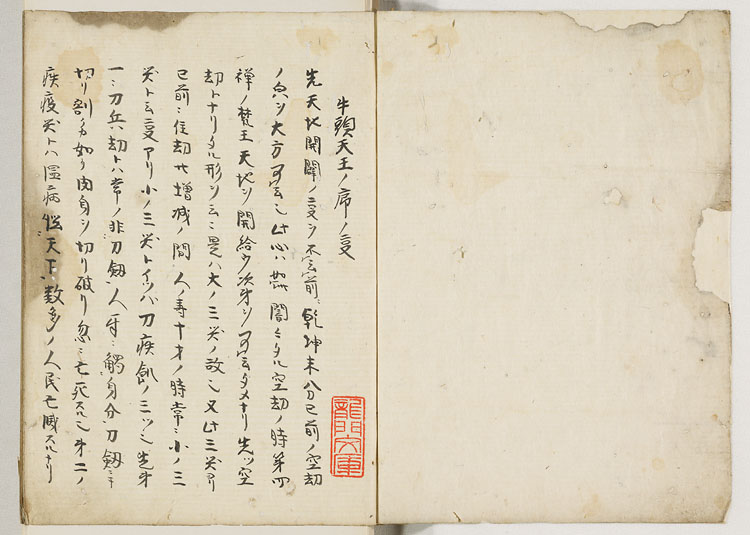 牛頭天王ノ序ノ事
先天地開闢ノ事ヲ不云前ニ乾坤未八分已前ノ空劫
ノ魚ヲ大方可云也此心ハ無闇々タル空劫ノ時第四
禅ノ梵王天地ヲ開給ウ次第ヲ可云タメナリ先ツ空
劫トナリタル形ヲ云ニ是ハ大ノ三災ノ故也又此三災ヨリ
已前ニ住劫廿増減ノ間人ノ寿十才ノ時常ニ小ノ三
災ト云事アリ小ノ三災トイツハ刀疾飢ノ三ツ也先第
一ニ刀兵劫トハ常ノ非刀釼人手ニ觸身分刀釼
切リ割カ如ク肉身ヲ切リ破リ忽ニ亡死スル也第二ノ
疾疫災トハ温病天下数多ノ人民亡滅スルナリ
龍門文庫